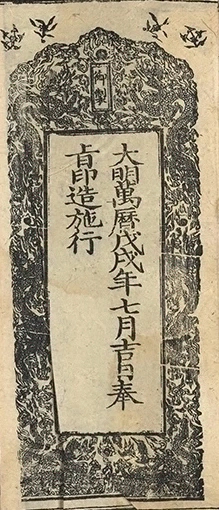 御
大明萬曆戊戌年七月吉日奉
旨印造施行